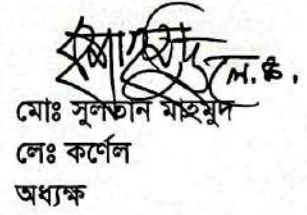 মোঃ সুলতান মাহমুদ
লেঃ কর্ণেল
অধ্যক্ষ